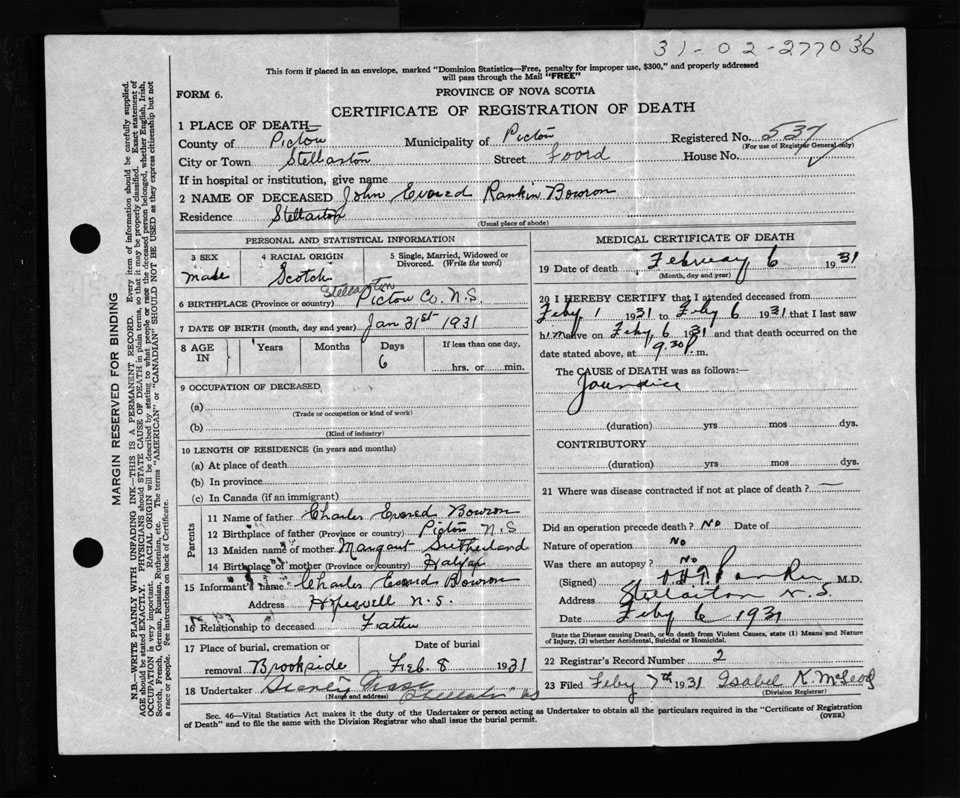 31-02-277036
This form if placed in an envelope, marked "Dominion Statistics—Free, penalty for improper use, $300," and properly addressed
will pass through the Mail "FREE"
FORM 6.
PROVINCE OF NOVA SCOTIA
CERTIFICATE OF REGISTRATION OF DEATH
1 PLACE OF DEATH—
County of Pictou Municipality of Pictou Registered No. 537
(For use of Registrar General only)
City or Town Stellarton Street Foord House No.
If in hospital or institution, give name
2 NAME OF DECEASED John Evored Rankin Bowron
Residence Stellarton
(Usual place of abode)
PERSONAL AND STATISTICAL INFORMATION
3 SEX 4 RACIAL ORIGIN 5 Single, Married, Widowed or
Divorced. (Write the word)
male Scotch
Stellarton
6 BIRTHPLACE (Province or country) Pictou Co. N.S.
7 DATE OF BIRTH (month, day and year) Jan 31st 1931
8 AGE IN Years Months Days If less than one day,
6 hrs. or min.
9 OCCUPATION OF DECEASED
(a)
(Trade or occupation or kind of work)
(b)
(Kind of industry)
10 LENGTH OF RESIDENCE (in years and months)
(a) At place of death
(b) In province
(c) In Canada (if an immigrant)
Parents
11 Name of father Charles Evored Bowron
12 Birthplace of father (Province or country) Pictou N.S
13 Maiden name of mother Margaret Sutherland
14 Birthplace of mother (Province or country) Halifax
15 Informant's name Charles Evored Bowron
Address Hopewell N.S.
16 Relationship to deceased Father
17 Place of burial, cremation or Date of burial
removal Brookside Feb. 8 1931
18 Undertaker
(Name and address)
MEDICAL CERTIFICATE OF DEATH
19 Date of death February 6 1931
(Month, day and year)
20 I HEREBY CERTIFY that I attended deceased from
Feby 1 1931 to Feby 6 1931 that I last saw
him alive on Feby 6 1931 and that death occurred on the
date stated above, at 9.30 p. m.
The CAUSE of DEATH was as follows:—
Jaundice
(duration) yrs mos dys.
CONTRIBUTORY
(duration) yrs mos dys.
21 Where was disease contracted if not at place of death? —
Did an operation precede death? No Date of
Nature of operation No
Was there an autopsy? No
(Signed) M.D.
Address Stellarton N.S.
Date Feby 6 1931
State the Disease causing Death, or in death from Violent Causes, state (1) Means and Nature
of Injury, (2) whether Accidental, Suicidal or Homicidal.
22 Registrar's Record Number 2
23 Filed Feby 7th 1931 Isabel K. McLeod
(Division Registrar)
Sec. 46—Vital Statistics Act makes it the duty of the Undertaker or person acting as Undertaker to obtain all the particulars required in the "Certificate of Registration
of Death" and to file the same with the Division Registrar who shall issue the burial permit.
(OVER)
MARGIN RESERVED FOR BINDING
N.B.—WRITE PLAINLY WITH UNFADING INK—THIS IS A PERMANENT RECORD. Every item of information should be carefully supplied.
AGE should be stated EXACTLY. PHYSICIANS should STATE CAUSE OF DEATH in plain terms, so that it may be properly classified. Exact statement of
OCCUPATION is very important. RACIAL ORIGIN will be described by stating to what people or race the deceased person belonged, whether English, Irish,
Scotch, French, German, Russian, Ruthenian, etc. The terms "AMERICAN" or "CANADIAN" SHOULD NOT BE USED as they express citizenship but not
a race or people. See instructions on back of Certificate.